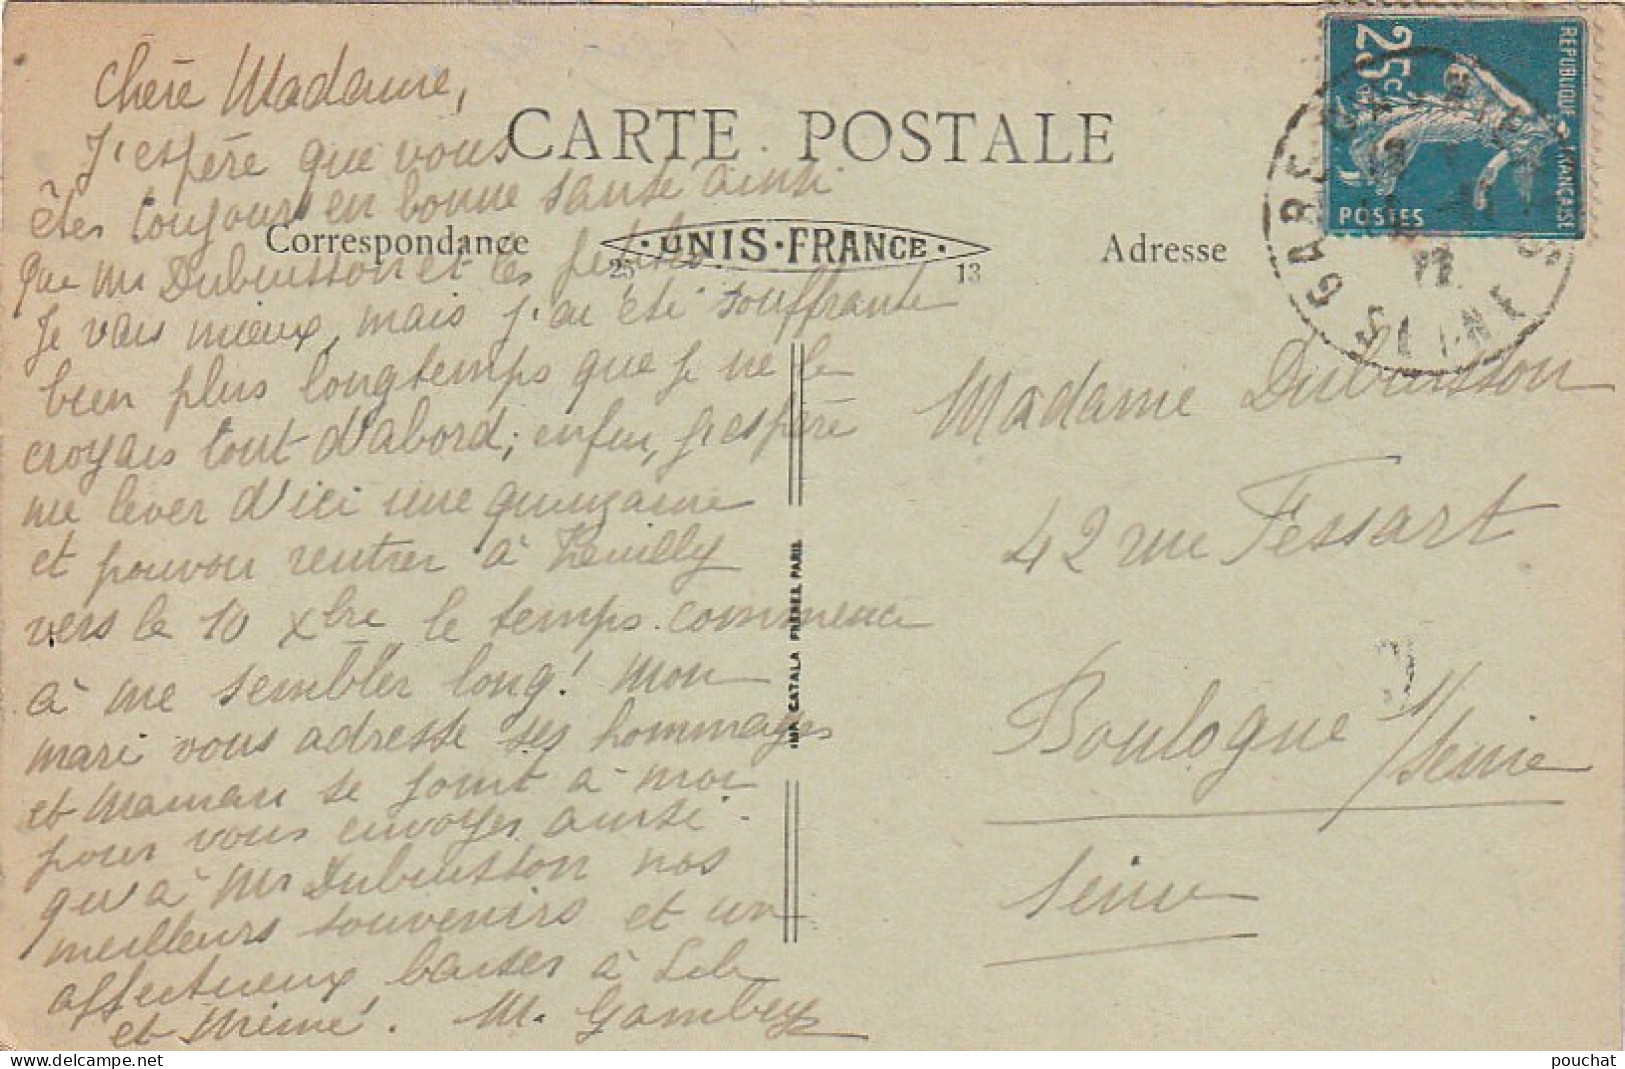 Chère Madame,
J'espère que vous
êtes toujours en bonne santé ainsi
que Mr Dubuisson et les petites.
Je vais mieux, mais j'ai été souffrante
bien plus longtemps que je ne le
croyais tout d'abord; enfin, j'espère
me lever d'ici une quinzaine
et pouvoir rentrer à Neuilly
vers le 10 Xbre le temps commence
à me sembler long! Mon
mari vous adresse ses hommages
et Maman se joint à moi
pour vous envoyer ainsi
qu'à Mr Dubuisson nos
meilleurs souvenirs et un
affectueux baiser à Lili
et Mimé. M. Gambey
CARTE POSTALE
Correspondance
UNIS·FRANCE
25 13
Adresse
IMP. CATALA FRÈRES, PARIS
25c
REPUBLIQUE FRANÇAISE
POSTES
GARENNE
SEINE
Madame Dubuisson
42 rue Fessart
Boulogne s/Seine
Seine
pouchat